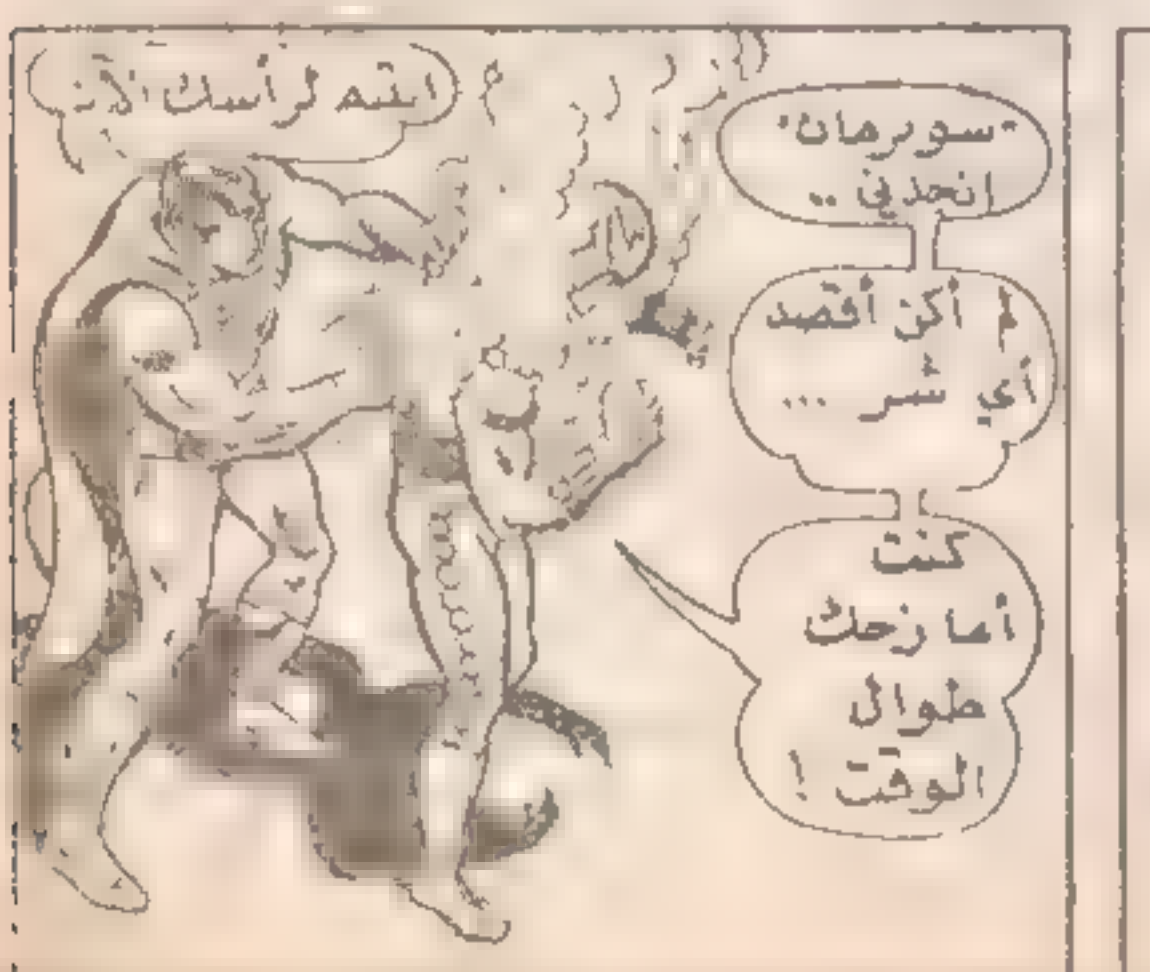 "سوبرمان"
انجدني ..
لم أكن أقصد
أي شر ...
كنت
أمازحك
طوال
الوقت !
انتبه لرأسك الآن